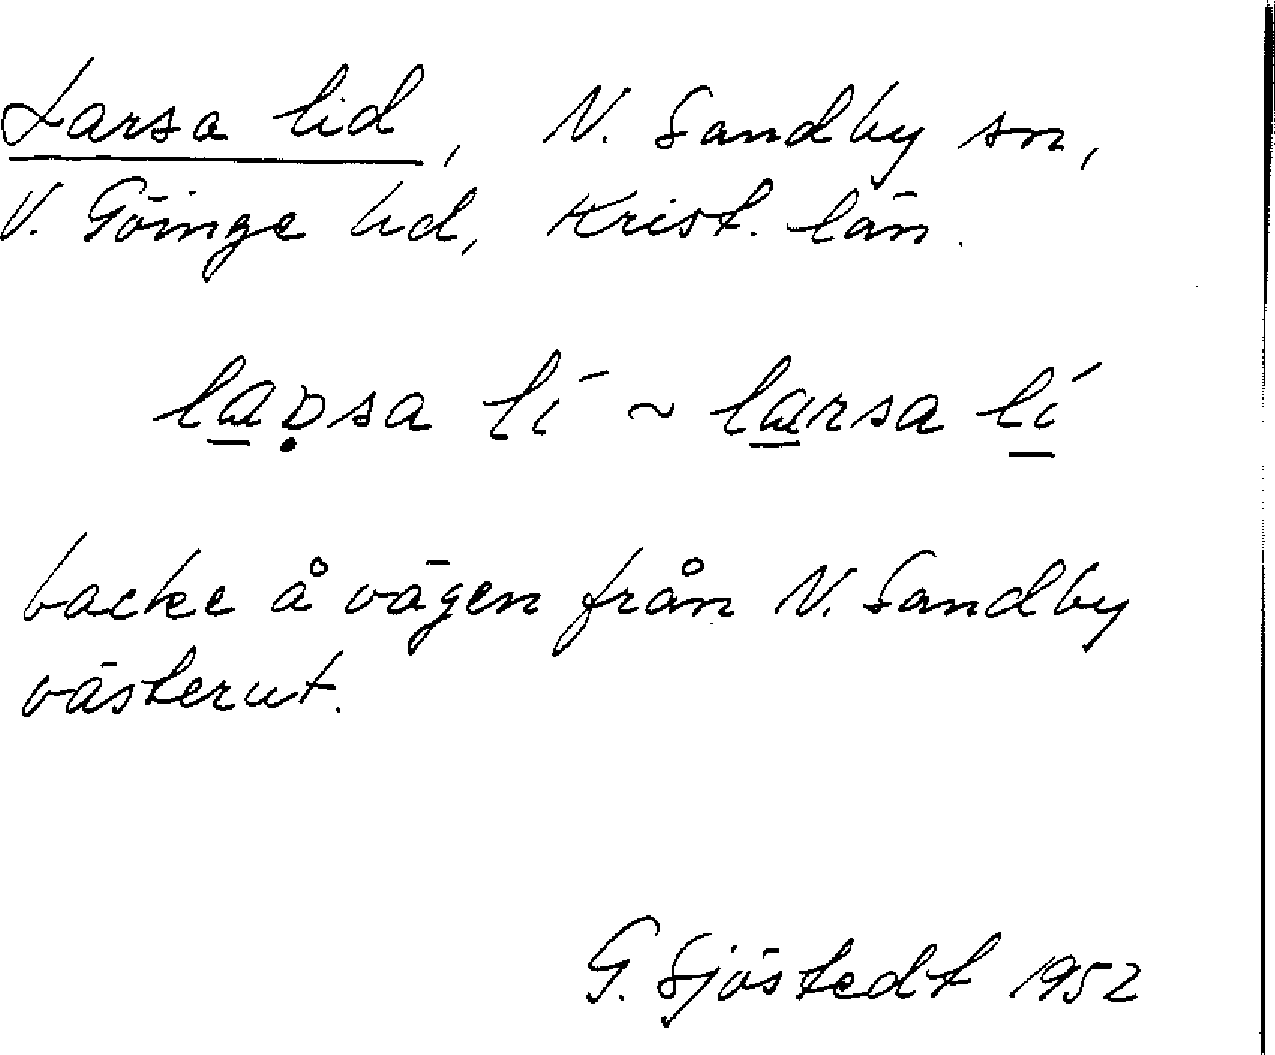 Larsa lid, N. Sandby sn,
V. Göinge hd, Krist. län.
larsa lí ~ larsa lí
backe å vägen från N. Sandby
västerut.
G. Sjöstedt 1952